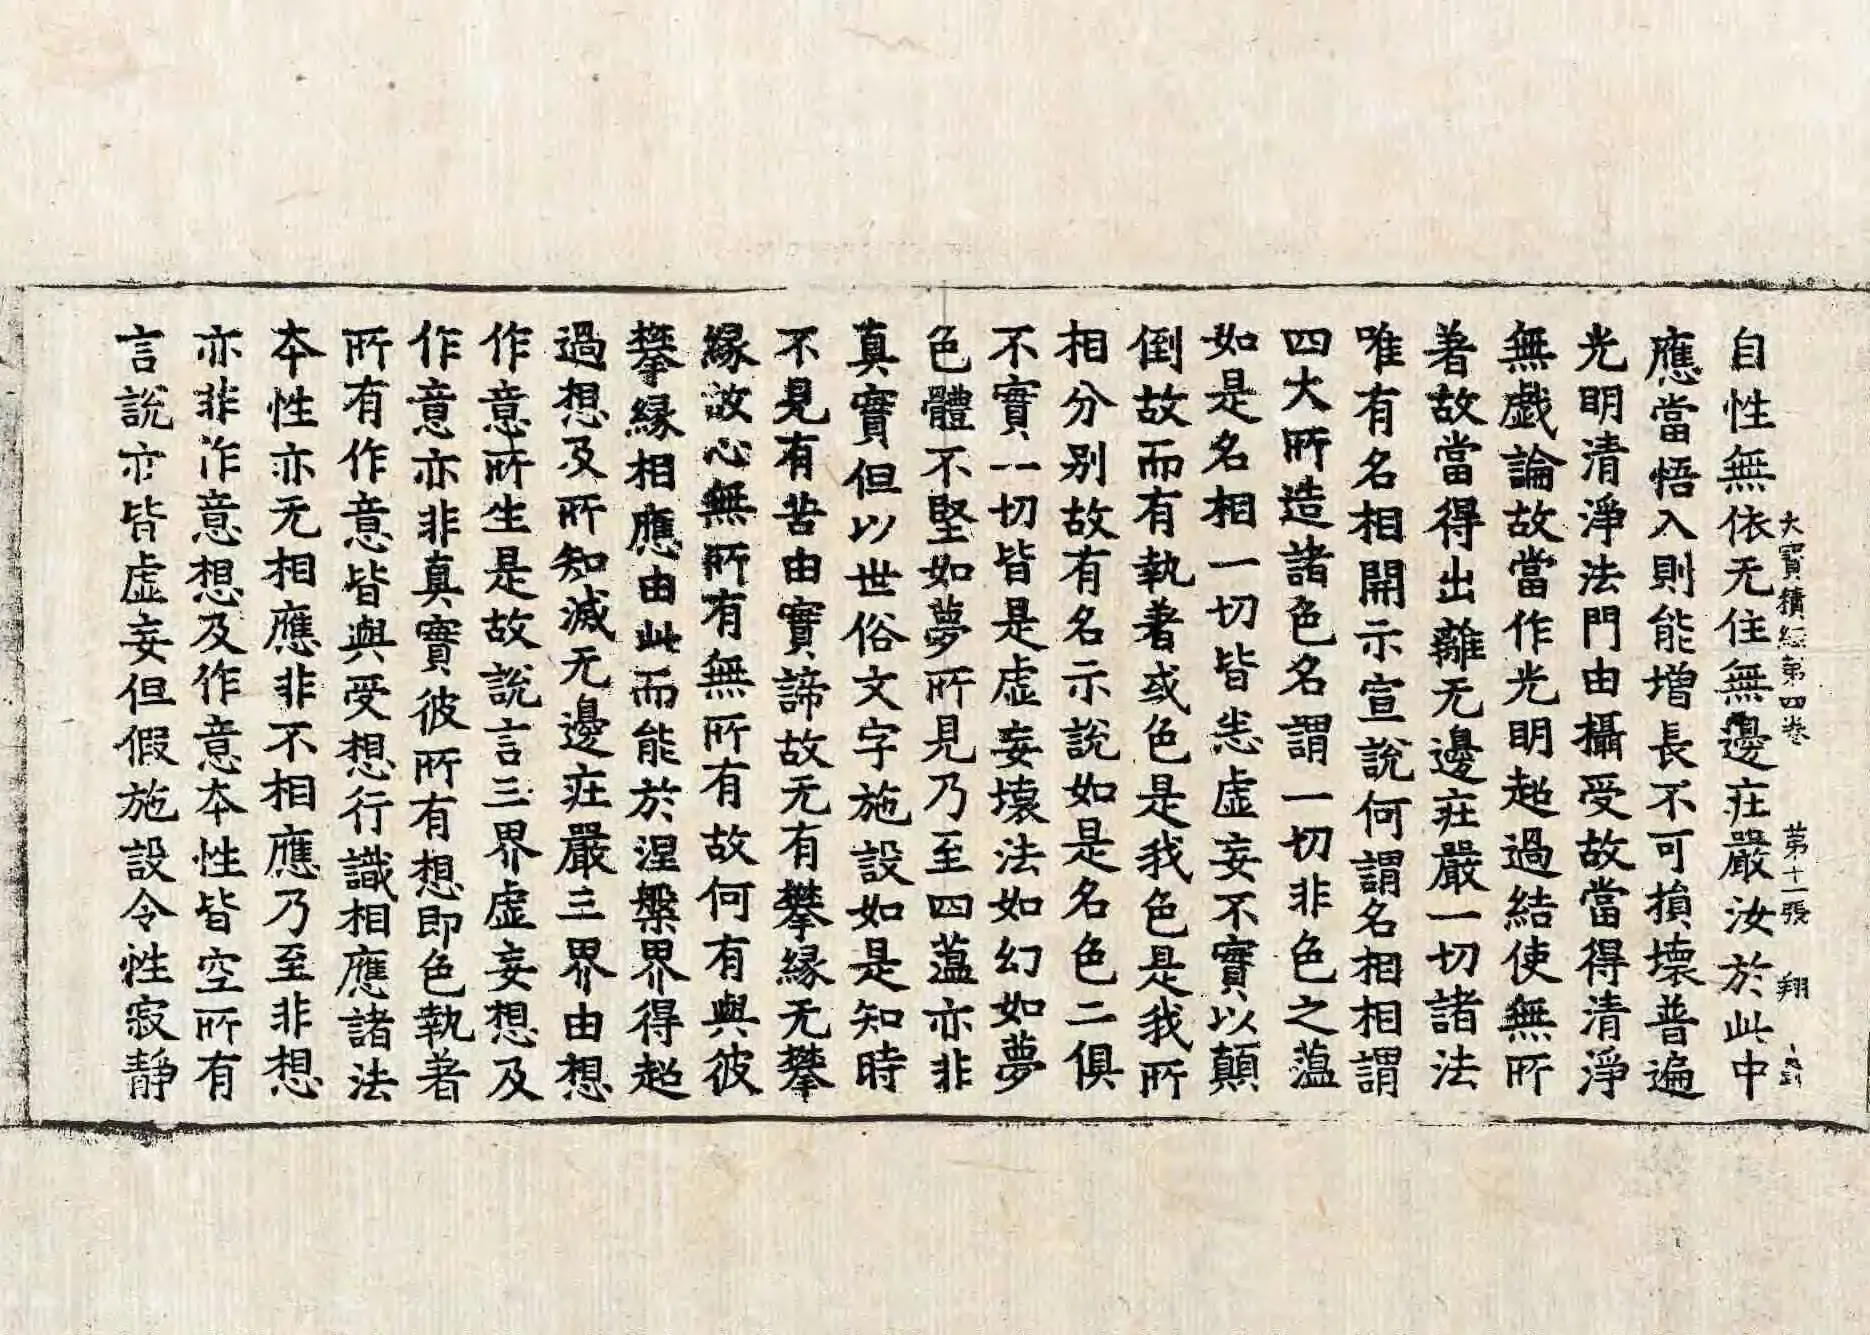 大寶積經第四卷 第十一張 翔
自性無依无住無邊疘嚴汝於此中
應當悟入則能增長不可損壞普遍
光明清淨法門由攝受故當得清淨
無戲論故當作光明超過結使無所
著故當得出離无邊疘嚴一切諸法
唯有名相開示宣說何謂名相相謂
四大所造諸色名謂一切非色之蕰
如是名相一切皆悉虛妄不實以顛
倒故而有執著或色是我色是我所
相分別故有名示說如是名色二俱
不實一切皆是虛妄壞法如幻如夢
色體不堅如夢所見乃至四蕰亦非
真實但以世俗文字施設如是知時
不見有苦由實諦故无有攀緣无攀
緣故心無所有無所有故何有與彼
攀緣相應由此而能於涅槃界得超
過想及所知滅无邊疘嚴三界由想
作意所生是故說言三界虛妄想及
作意亦非真實彼所有想即色執著
所有作意皆與受想行識相應諸法
本性亦无相應非不相應乃至非想
亦非作意想及作意本性皆空所有
言說亦皆虛妄但假施設令性寂靜